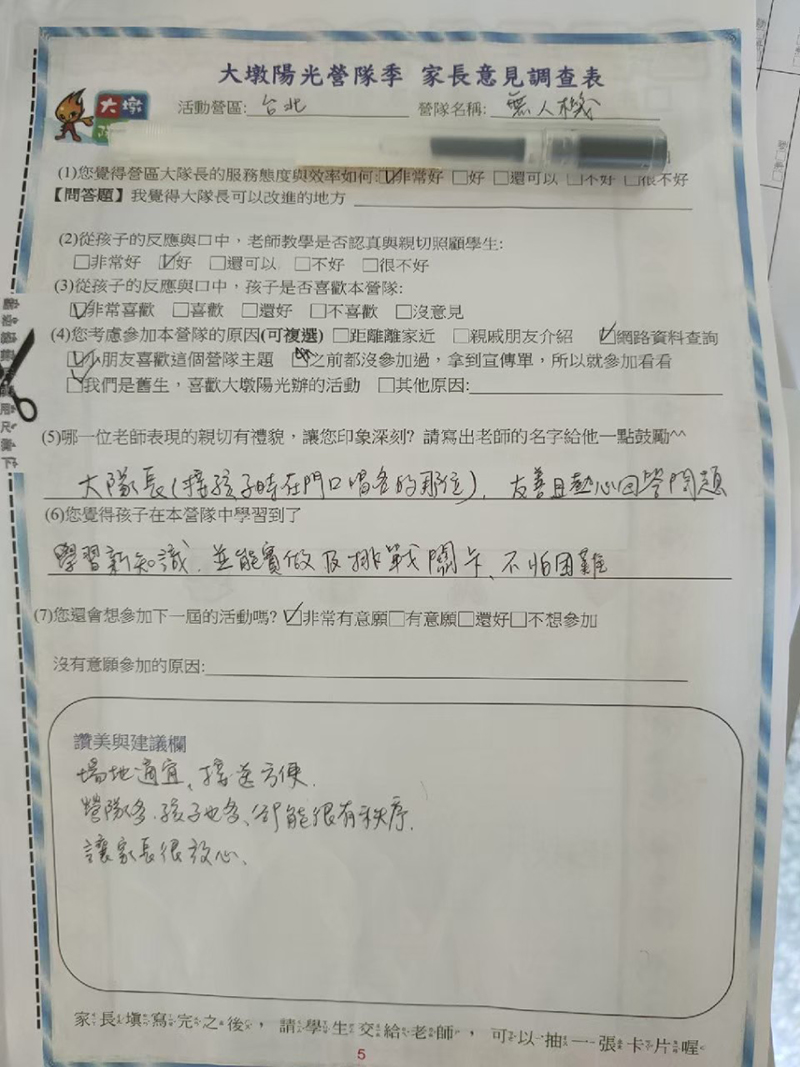 大墩陽光營隊季 家長意見調查表
大墩
活動營區: 台北 營隊名稱: 無人機
(1)您覺得營區大隊長的服務態度與效率如何:☑非常好 □好 □還可以 □不好 □很不好
【問答題】我覺得大隊長可以改進的地方
(2)從孩子的反應與口中，老師教學是否認真與親切照顧學生:
□非常好 ☑好 □還可以 □不好 □很不好
(3)從孩子的反應與口中，孩子是否喜歡本營隊:
☑非常喜歡 □喜歡 □還好 □不喜歡 □沒意見
(4)您考慮參加本營隊的原因(可複選)□距離離家近 □親戚朋友介紹 ☑網路資料查詢
☑小朋友喜歡這個營隊主題 □之前都沒參加過，拿到宣傳單，所以就參加看看
☑我們是舊生，喜歡大墩陽光辦的活動 □其他原因:
(5)哪一位老師表現的親切有禮貌，讓您印象深刻? 請寫出老師的名字給他一點鼓勵^^
大隊長(接孩子時在門口唱名的那位)、友善且熱心回答問題
(6)您覺得孩子在本營隊中學習到了
學習新知識、並能實做及挑戰關卡、不怕困難
(7)您還會想參加下一屆的活動嗎? ☑非常有意願□有意願□還好□不想參加
沒有意願參加的原因:
讚美與建議欄
場地適宜、接送方便.
營隊多、孩子也多、卻能很有秩序.
讓家長很放心、
家長填寫完之後，請學生交給老師，可以抽一張卡片喔
5